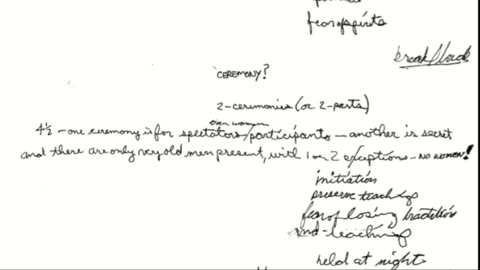 fear of spirits
break/lead
CEREMONY?
2-ceremonies (or 2-parts)
even women
4½ - one ceremony is for spectators/participants - another is secret
and there are only very old men present, with 1 or 2 exceptions - no women!
initiation
preserve teachings
fear of losing tradition
and-teaching
held at night